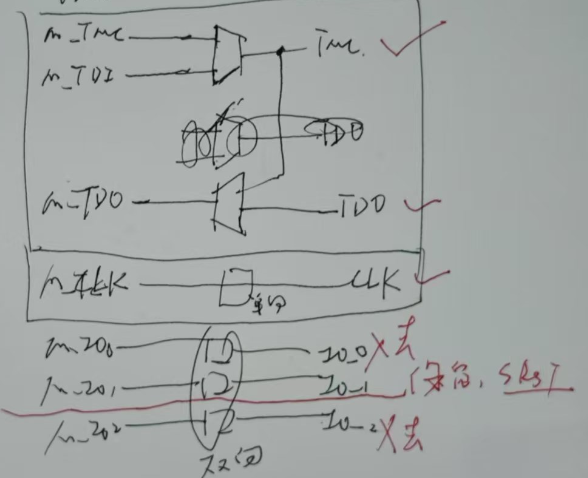 m_TMC TMC
m_TDI
TDO
m_TDO TDO
m_CLK CLK
单向
m_IO0 IO_0 去
m_IO1 IO_1 (保留, SRST
m_IO2 IO_2 去
双向